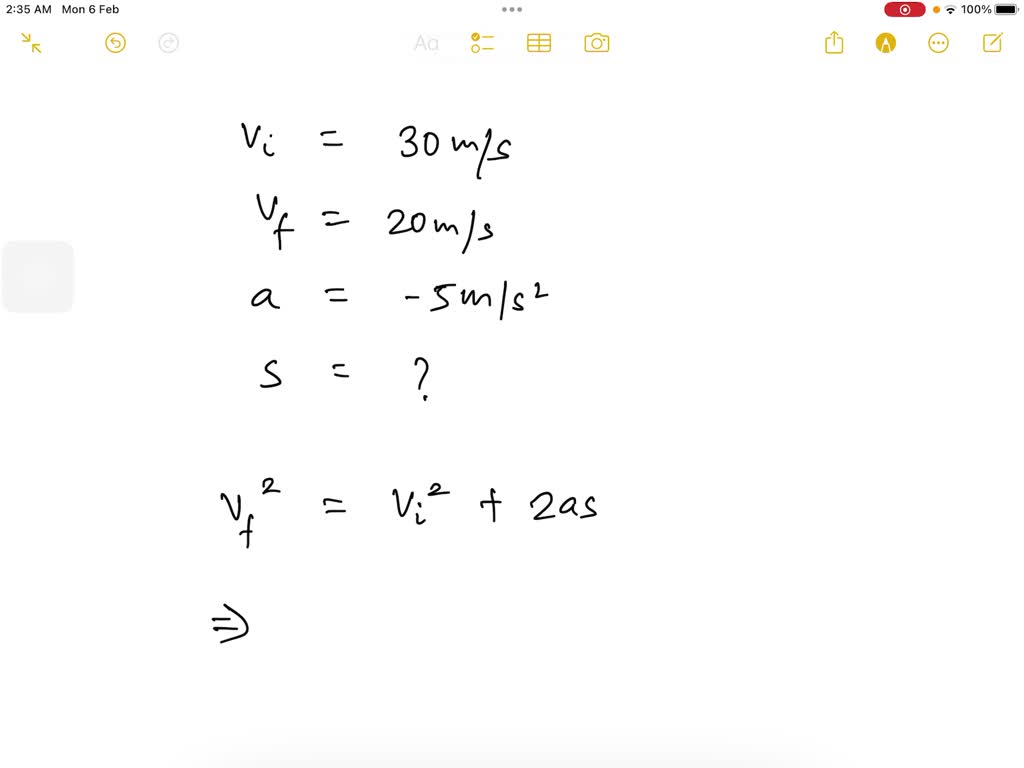 2:35 AM Mon 6 Feb 100%
Aa
vi = 30 m/s
vf = 20 m/s
a = -5 m/s²
s = ?
vf² = vi² + 2as
⇒